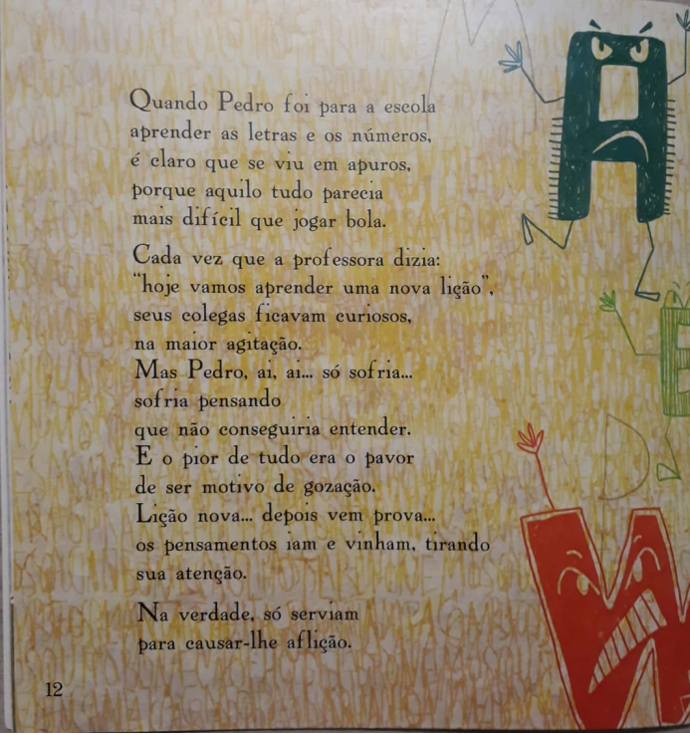 Quando Pedro foi para a escola
aprender as letras e os números,
é claro que se viu em apuros,
porque aquilo tudo parecia
mais difícil que jogar bola.
Cada vez que a professora dizia:
“hoje vamos aprender uma nova lição”,
seus colegas ficavam curiosos,
na maior agitação.
Mas Pedro, ai, ai... só sofria...
sofria pensando
que não conseguiria entender.
E o pior de tudo era o pavor
de ser motivo de gozação.
Lição nova... depois vem prova...
os pensamentos iam e vinham, tirando
sua atenção.
Na verdade, só serviam
para causar-lhe aflição.
12
A
E
D
W